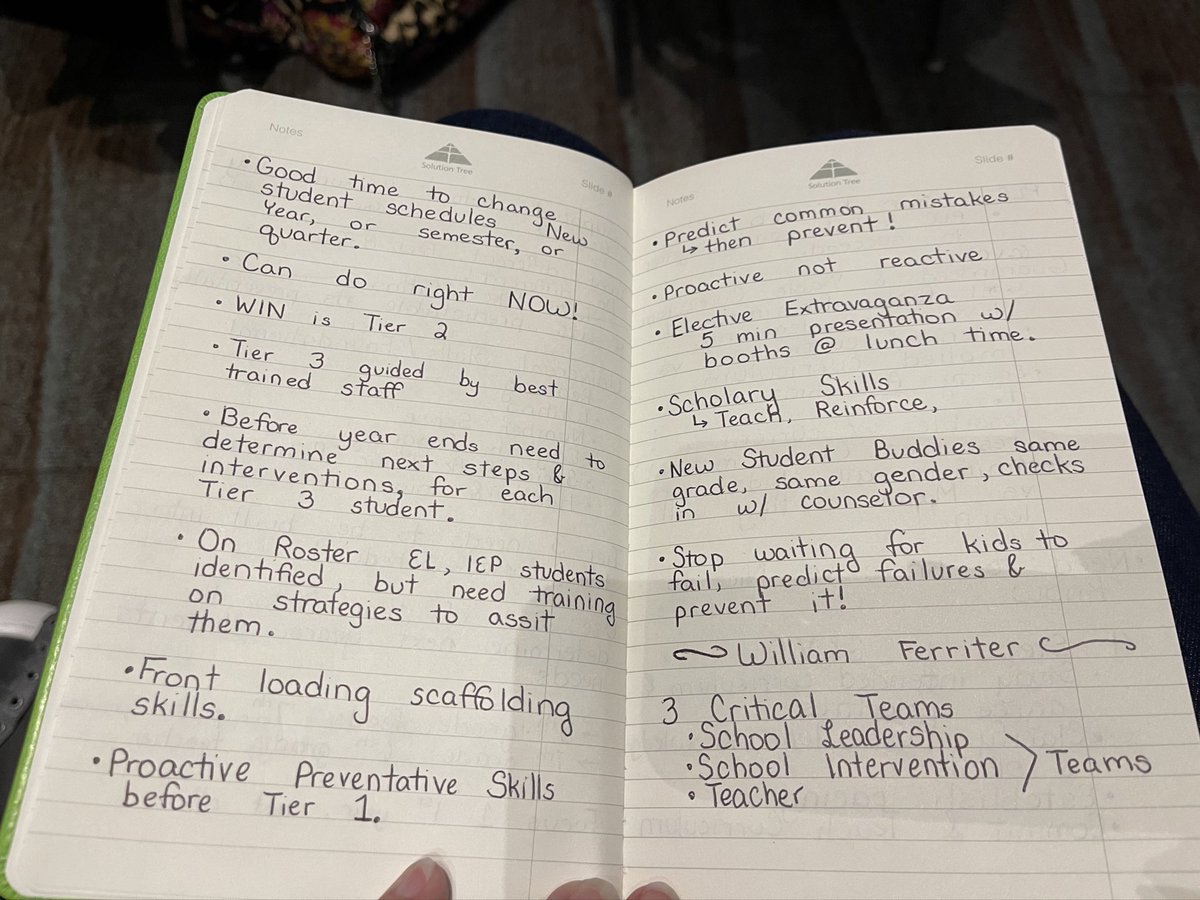 Notes
Solution Tree
Slide #
• Good time to change
student schedules New
Year, or semester, or
quarter.
• Can do right NOW!
• WIN is Tier 2
• Tier 3 guided by best
trained staff
• Before year ends need to
determine next steps &
interventions, for each
Tier 3 student.
• On Roster EL, IEP students
identified, but need training
on strategies to assit
them.
• Front loading scaffolding
skills.
• Proactive Preventative Skills
before Tier 1.
Notes
Solution Tree
Slide #
• Predict common mistakes
↳ then prevent!
• Proactive not reactive
• Elective Extravaganza
5 min presentation w/
booths @ lunch time.
• Scholary Skills
↳ Teach, Reinforce,
• New Student Buddies same
grade, same gender, checks
in w/ counselor.
• Stop waiting for kids to
fail, predict failures &
prevent it!
William Ferriter
3 Critical Teams
• School Leadership
• School Intervention > Teams
• Teacher